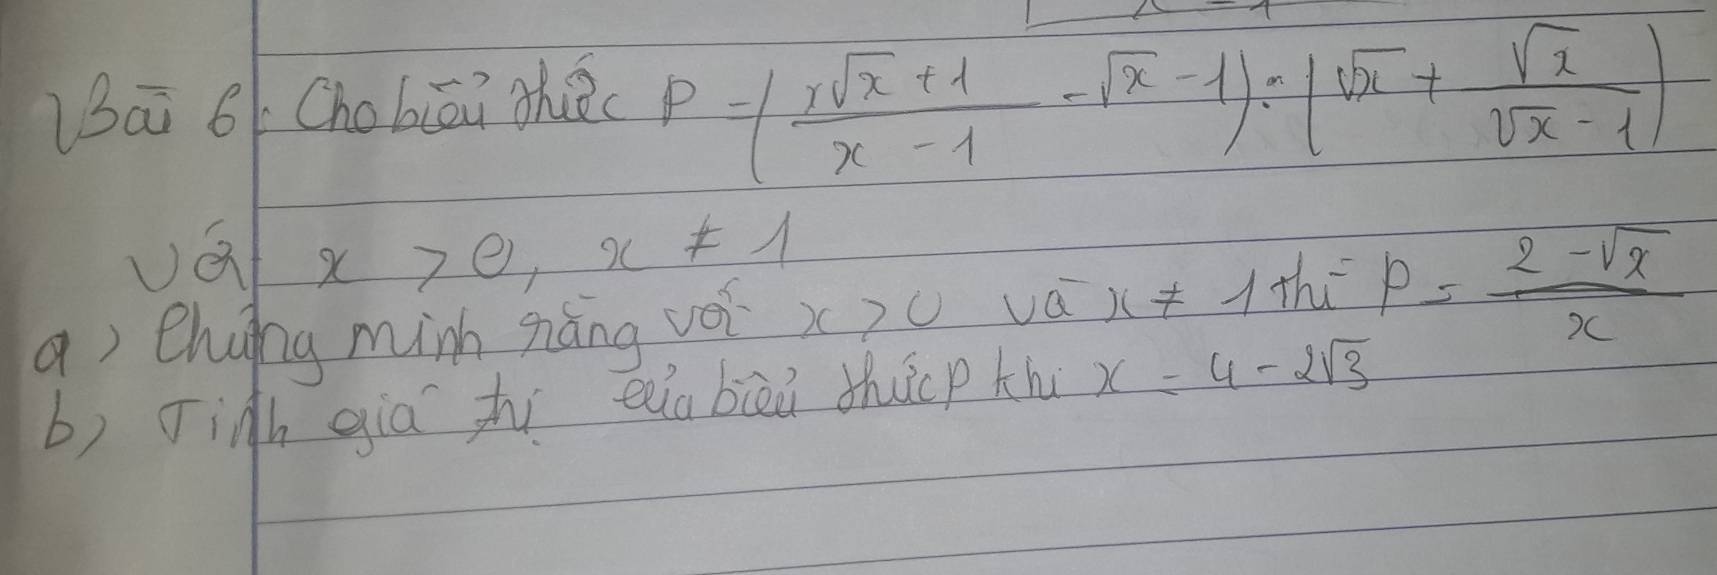 Bài 6: Cho biểu thức P = (x√x + 1 / x - 1 - √x - 1) : (√x + √x / √x - 1)
với x > 0, x ≠ 1
a) Chứng minh rằng với x > 0 và x ≠ 1 thì P = 2 - √x / x
b) Tính giá trị của biểu thức P khi x = 4 - 2√3